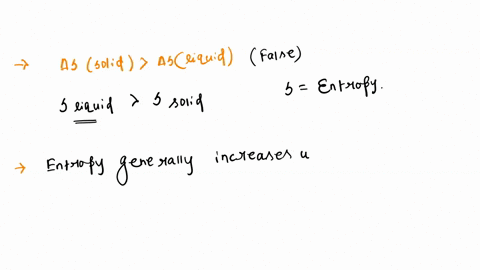 → ΔS (solid) > ΔS (liquid) (False)
S liquid > S solid S = Entropy.
→ Entropy generally increases u